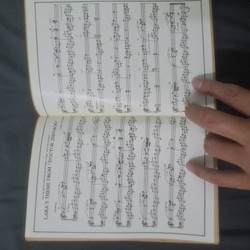 LARA'S THEME FROM "DOCTOR ZHIVAGO"